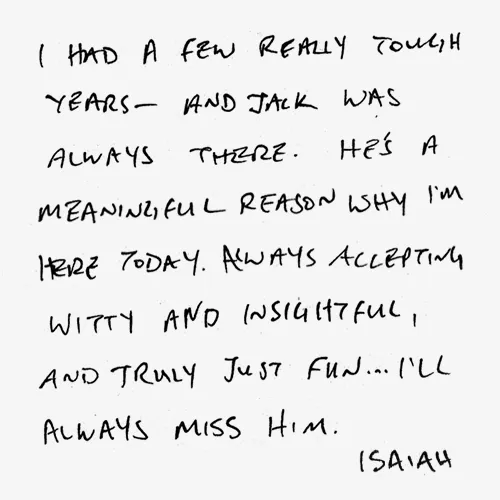 I HAD A FEW REALLY TOUGH
YEARS— AND JACK WAS
ALWAYS THERE. HE'S A
MEANINGFUL REASON WHY I'M
HERE TODAY. ALWAYS ACCEPTING
WITTY AND INSIGHTFUL,
AND TRULY JUST FUN... I'LL
ALWAYS MISS HIM.
ISAIAH